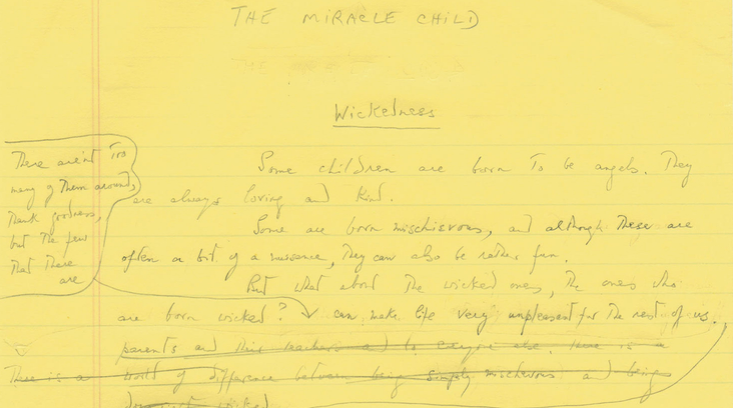 THE MIRACLE CHILD
Wickedness
There aren't too
many of them around,
thank goodness,
but the few
that there
are
Some children are born to be angels. They
are always loving and kind.
Some are born mischievous, and although these are
often a bit of a nuisance, they can also be rather fun.
But what about the wicked ones, the ones who
are born wicked? can make life very unpleasant for the rest of us.
parents and their teachers and to else. There is a
There is a world of difference between being simply mischievous and being
wicked